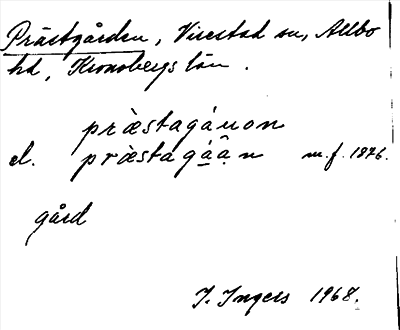 Prästgården, Virestad sn, Allbo
hd, Kronobergs län.
prä̀stagáuon
el. prä̀stagá̱â̱n m.f. 1876.
gård
I. Ingers 1968.